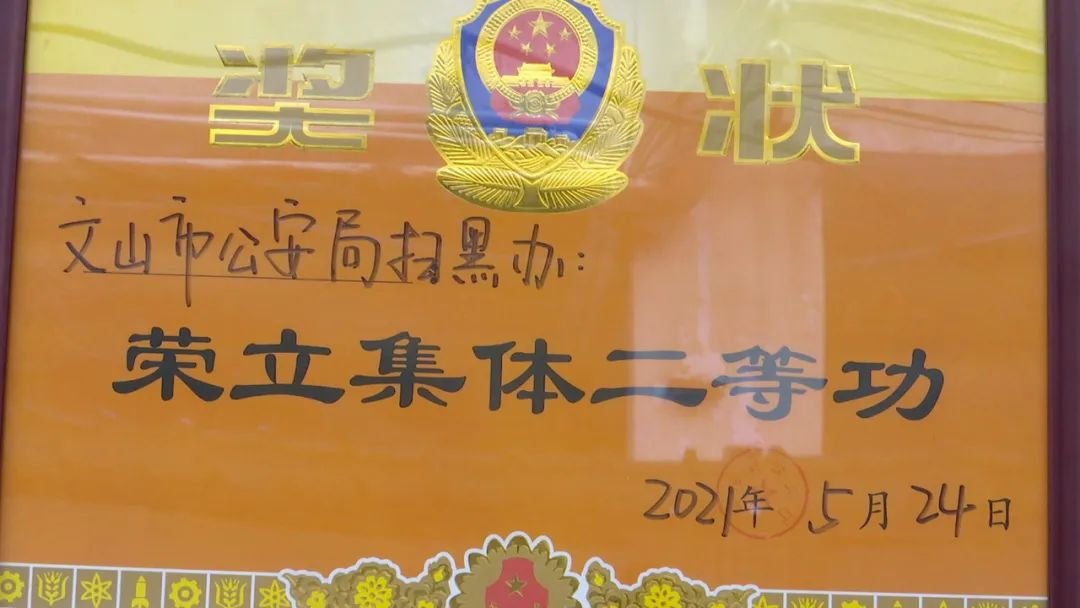 奖状
文山市公安局扫黑办:
荣立集体二等功
2021年5月24日